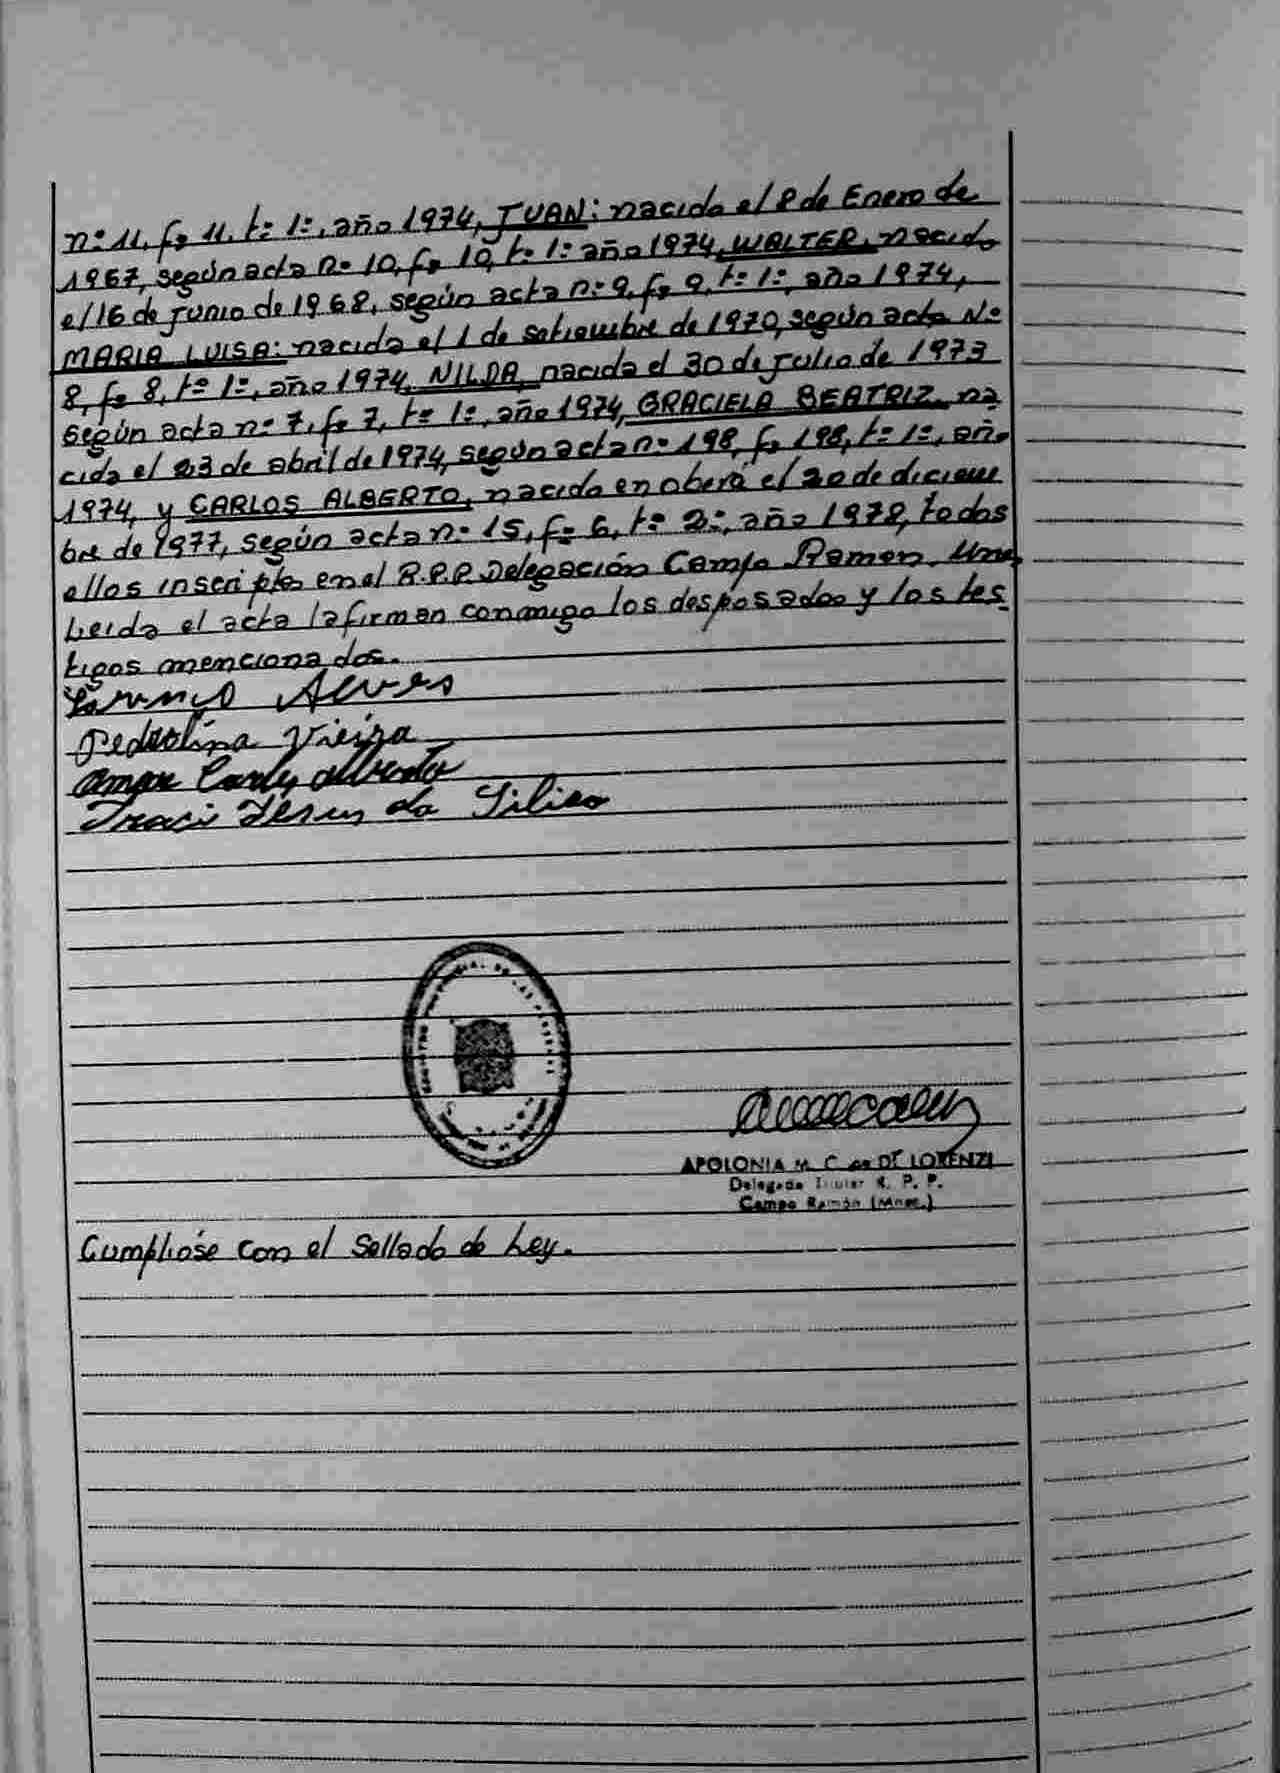 nº 11, fº 11, tº 1º, año 1974, JUAN: nacido el 8 de Enero de
1967, según acta nº 10, fº 10, tº 1º año 1974, WALTER, nacido
el 16 de junio de 1968, según acta nº 9, fº 9, tº 1º, año 1974,
MARIA LUISA: nacida el 1 de setiembre de 1970, según acta Nº
8, fº 8, tº 1º, año 1974, NILDA, nacida el 30 de julio de 1973
según acta nº 7, fº 7, tº 1º, año 1974, GRACIELA BEATRIZ, na
cida el 23 de abril de 1974, según acta nº 198, fº 198, tº 1º, año
1974, y CARLOS ALBERTO, nacido en oberá el 20 de diciem
bre de 1977, según acta nº 15, fº 6, tº 2º, año 1978, todos
ellos inscriptos en el R.P.P. Delegación Campo Ramon.
Leida el acta la firman conmigo los desposados y los tes
tigos mencionados.
Alves
Pedrolina Vieira
Carlos Alberto
Jesus da Silva
APOLONIA M. C. de DI LORENZI
Delegada Titular R. P. P.
Campo Ramón (Mnes.)
Cumpliose con el Sellado de Ley.